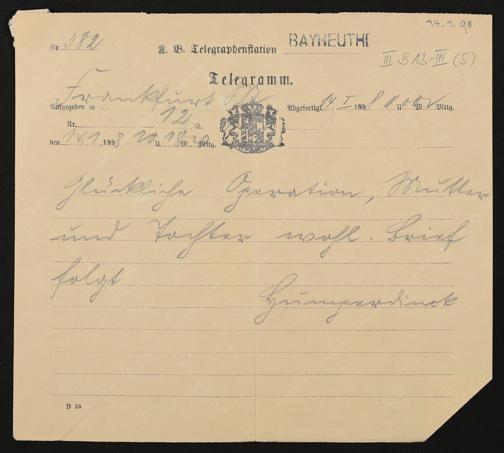 14.1.98
Nr. 382 K. B. Telegraphenstation BAYREUTH
III B 13-III (5)
Telegramm.
Frankfurt
Aufgegeben in Abgefertigt 14 I 1898 11 U. M. Mttg.
Nr. 12 W.
den 14.1 1898 10 U. 18 M. Mttg.
Glückliche Operation, Mutter
und Tochter wohl. Brief
folgt
Humperdinck
D 55